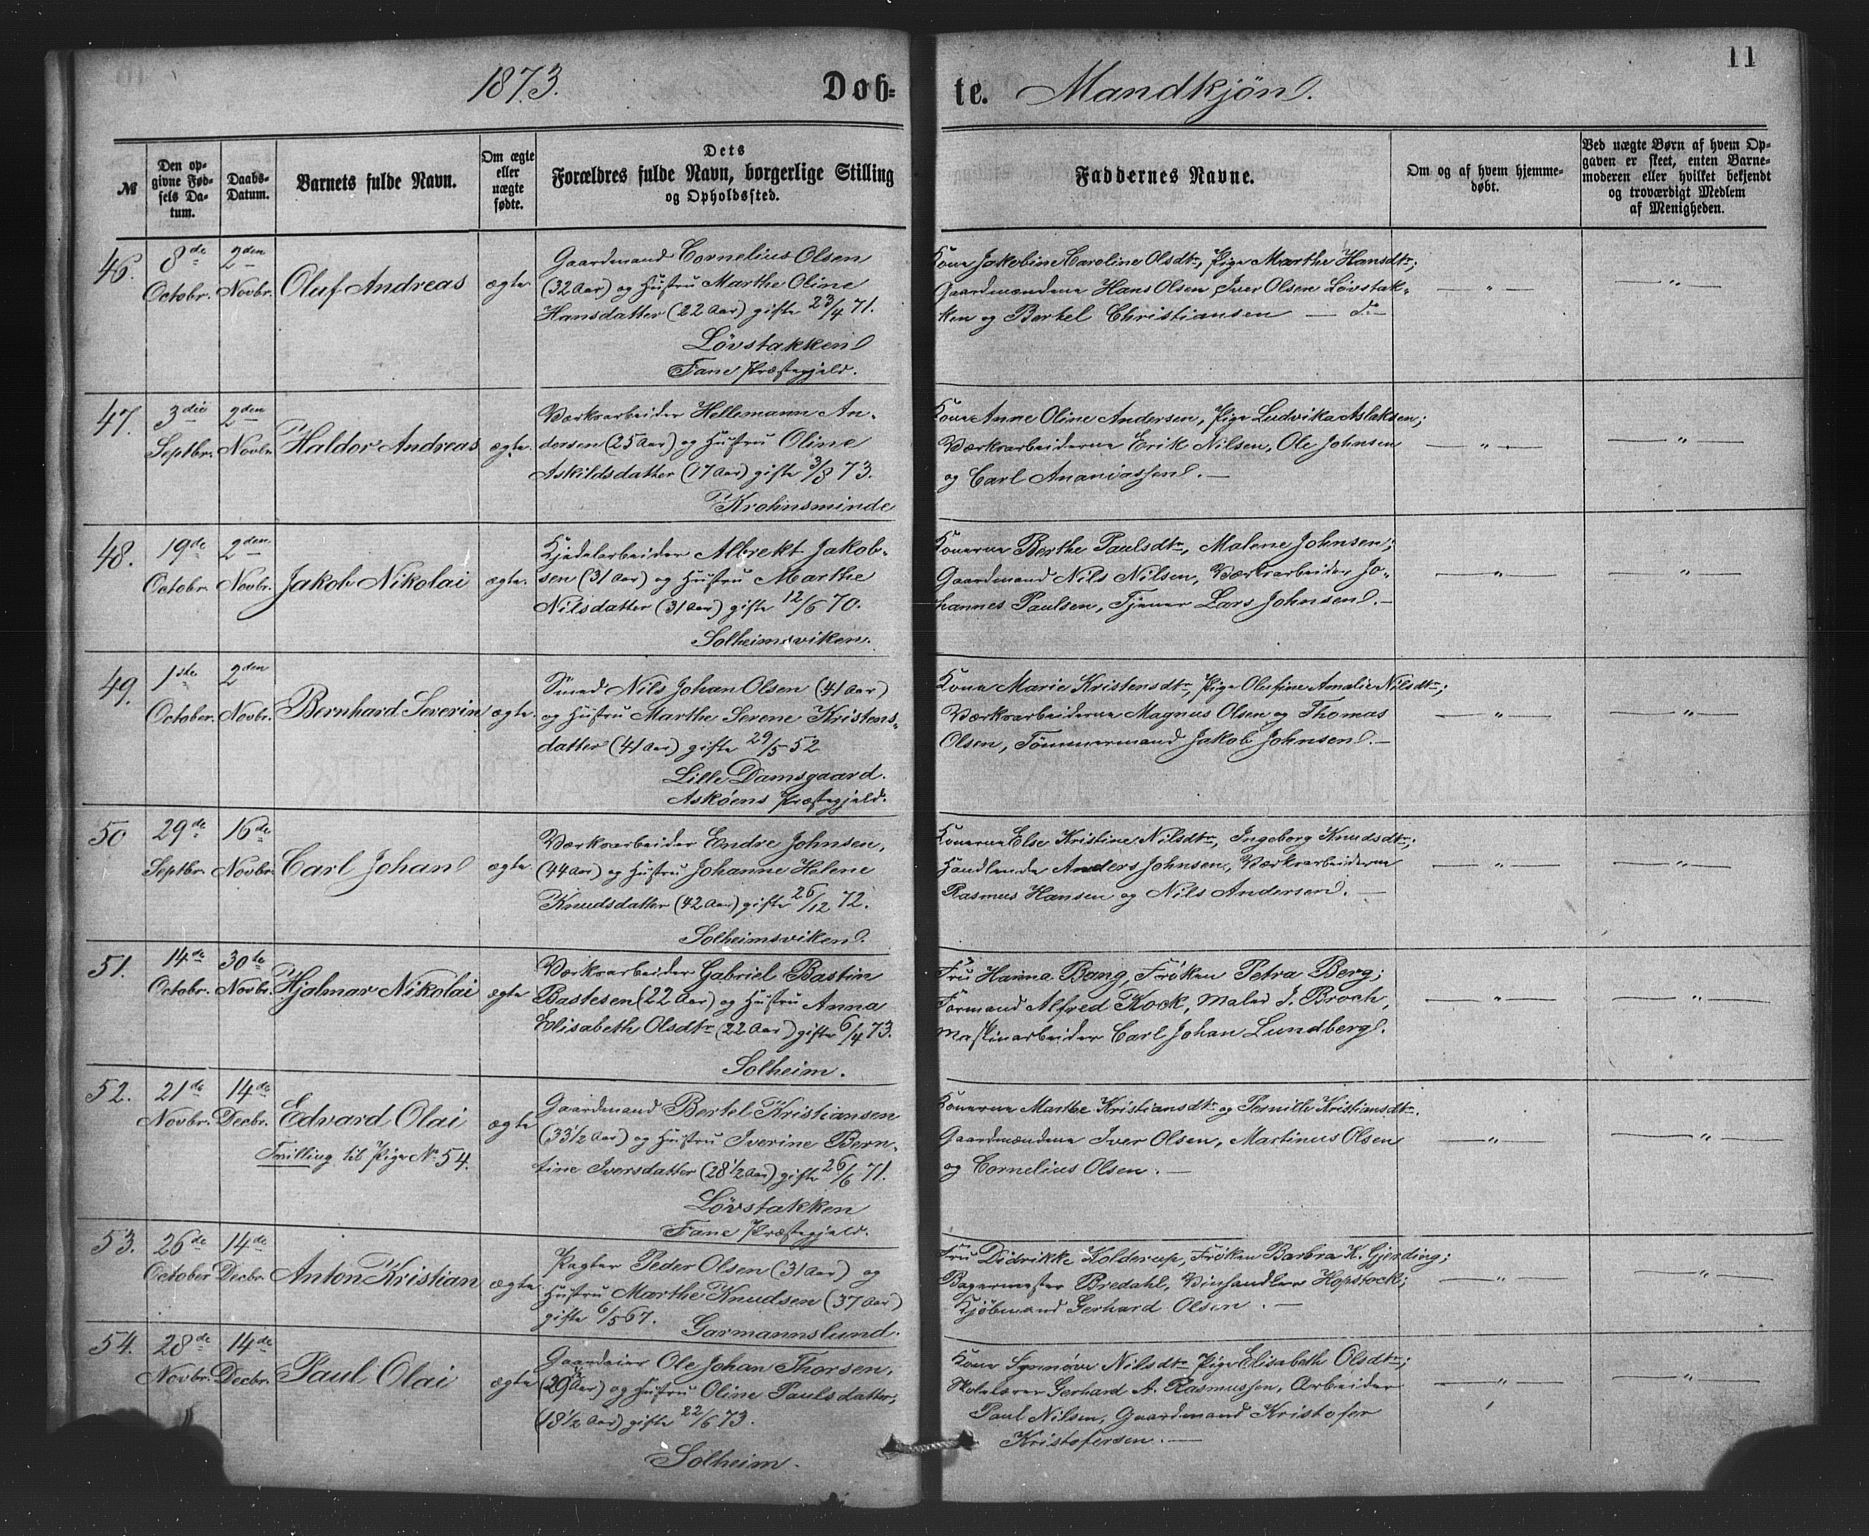 1873.
Døb-
te.
Mandkjøn.
11
№
Den opgivne Fødsels Datum.
Daabs-Datum.
Barnets fulde Navn.
Om ægte eller uægte fødte.
Dets
Forældres fulde Navn, borgerlige Stilling
og Opholdssted.
Faddernes Navne.
Om og af hvem hjemmedøbt.
Ved uægte Børn af hvem Opgaven er skeet, enten Barnemoderen eller hvilket bekjendt og troværdigt Medlem af Menigheden.
46. 8de Octobr. 2den Novbr. Oluf Andreas ægte
Gaardmand Cornelius Olsen
(32 Aar) og Hustru Marthe Oline
Hansdatter (22 Aar) gifte 23/4 71.
Løvstakken
Fane Præstegjeld.
Kone Jakobine Caroline Olsdtr, Pige Marthe Hansdtr;
Gaardmændene Hans Olsen, Iver Olsen Løvstak-
ken og Bertel Christiansen — do —
— " — — " —
47. 3die Septbr. 2den Novbr. Haldor Andreas ægte.
Værkarbeider Hellemann An-
dersen (25 Aar) og Hustru Oline
Askildsdatter (17 Aar) gifte 3/8 73.
Krohnsminde
Kone Anne Oline Andersen, Pige Ludvika Aslaksen;
Værkarbeiderne Erik Nilsen, Ole Johnsen
og Carl Ananiassen. —
— " — — " —
48. 19de Octobr. 2den Novbr. Jakob Nikolai ægte.
Kjedelarbeider Albrekt Jakob-
sen (31 Aar) og Hustru Marthe
Nilsdatter (31 Aar) gifte 12/6 70.
Solheimsviken.
Konerne Berthe Paulsdtr, Malene Johnsen;
Gaardmand Nils Nilsen, Værkarbeider Jo-
hannes Paulsen, Tjener Lars Johnsen. —
— " — — " —
49. 1ste October. 2den Novbr. Bernhard Severin ægte.
Smed Nils Johan Olsen (41 Aar)
og Hustru Marthe Serene Kristens-
datter (41 Aar) gifte 29/5 52
Lille Damsgaard.
Askøens Præstegjeld.
Kone Marie Kristensdtr, Pige Olufine Amalie Nilsdtr;
Værkarbeiderne Magnus Olsen og Thomas
Olsen, Tømmermand Jakob Johnsen. —
— " — — " —
50 29de Septbr. 16de Novbr. Carl Johan ægte
Værkarbeider Endre Johnsen,
(44 Aar) og Hustru Johanne Helene
Knudsdatter (42 Aar) gifte 26/12 72.
Solheimsviken.
Konerne Else Kristine Nilsdtr, Ingeborg Knudsdtr;
Handlende Anders Johnsen, Værkarbeiderne
Rasmus Hansen og Nils Andersen. —
— " — — " —
51. 14de Octobr. 30te Novbr. Hjalmar Nikolai ægte
Værkarbeider Gabriel Bastin
Bastesen (22 Aar) og Hustru Anna
Elisabeth Olsdtr (22 Aar) gifte 6/4 73.
Solheim.
Fru Hanna Bang, Frøken Petra Berg;
Formand Alfred Kock, Maler J. Broch,
Maskinarbeider Carl Johan Lundberg.
— " — — " —
52. 21de Novbr. 14de Decbr. Edvard Olai ægte
Tvilling til Pige No 54.
Gaardmand Bertel Kristiansen
(33 1/2 Aar) og Hustru Iverine Bern-
tine Iversdatter (28 1/2 Aar) gifte 26/6 71.
Løvstakken
Fane Præstegjeld.
Konerne Marthe Kristiansdtr og Pernille Kristiansdtr.
Gaardmændene Iver Olsen, Martinus Olsen
og Cornelius Olsen. —
— " — — " —
53. 26de October 14de Decbr. Anton Kristian ægte
Pagter Peder Olsen (31 Aar) og
Hustru Marthe Knudsen (37 Aar)
gifte 6/5 67. Garmannslund.
Fru Didrikke Kolderup, Frøken Barbra K. Gjerding;
Bagermester Bredahl, Vinhandler Hopstock;
Kjøbmand Gerhard Olsen. —
— " — — " —
54. 28de Novbr. 14de Decbr. Paul Olai ægte
Gaardeier Ole Johan Thorsen,
(29 Aar) og Hustru Oline Paulsdatter,
(18 1/2 Aar) gifte 22/6 73.
Solheim.
Kone Synnøve Nilsdtr Pige Elisabeth Olsdtr;
Skolelærer Gerhard A. Rasmussen, Arbeider
Paul Nilsen, Gaardmand Kristofer
Kristofersen. —
— " — — " —